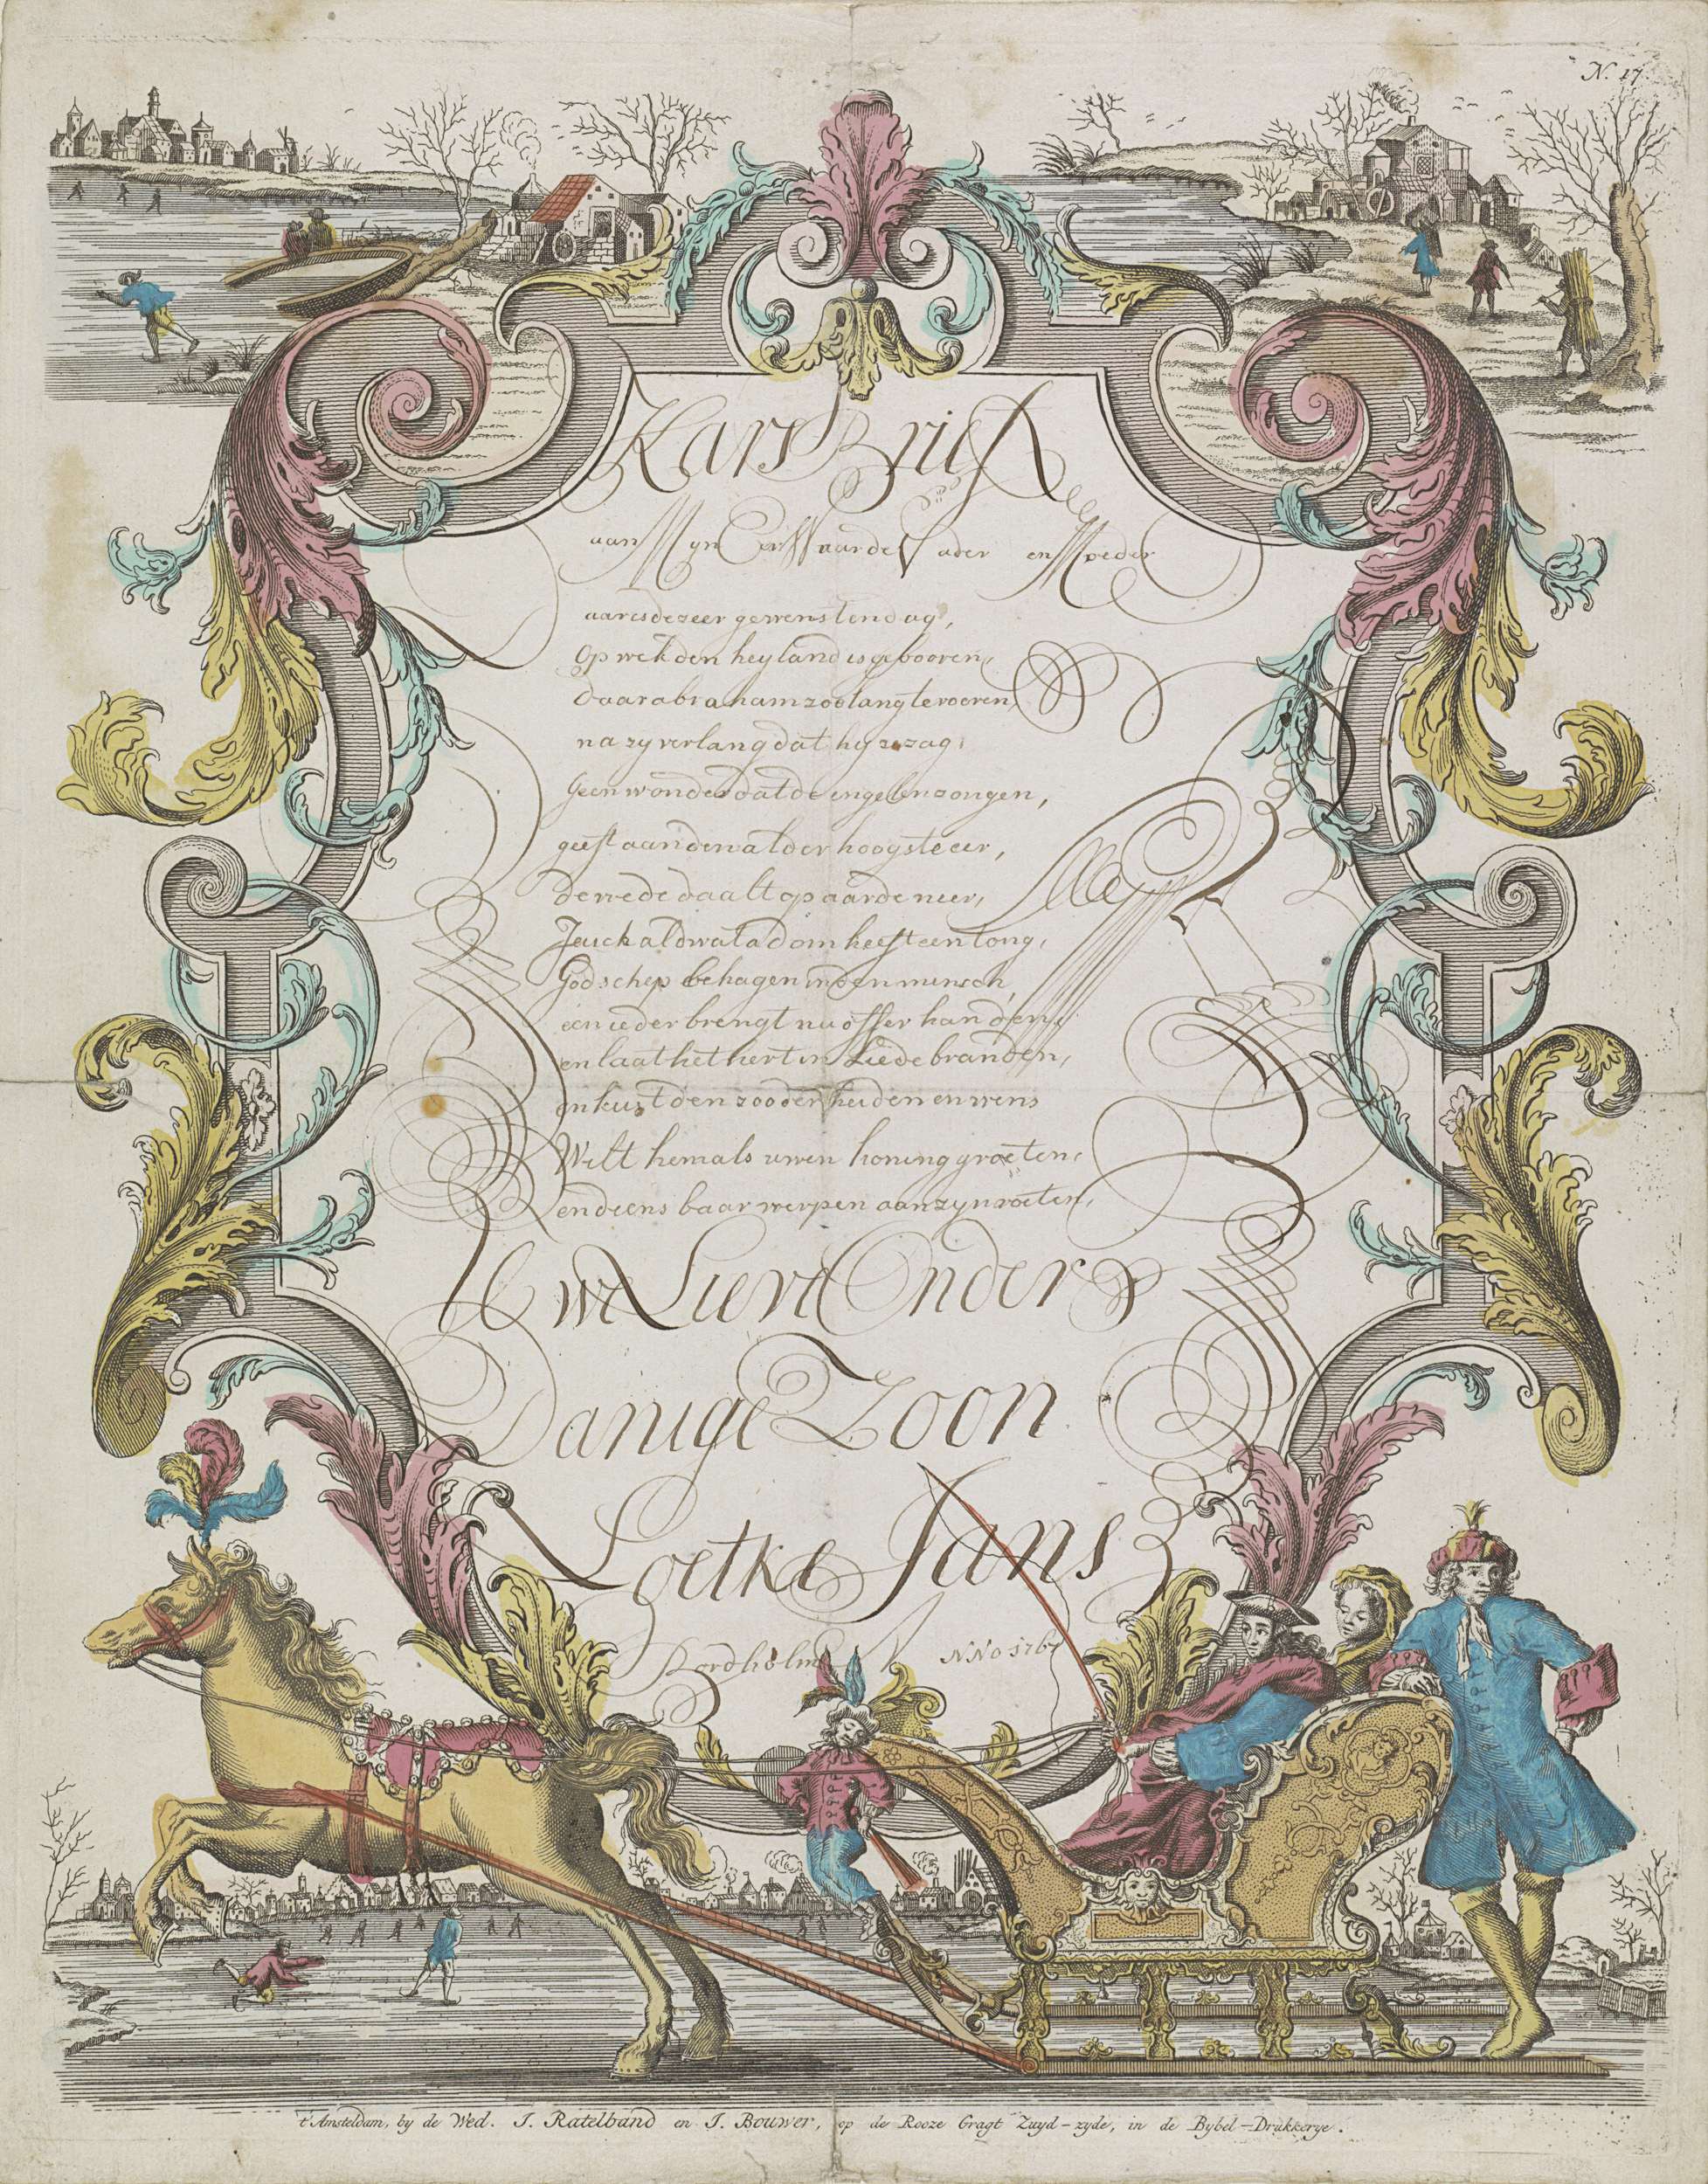 N. 17.
Kars Brief
aan Myn Eer Waarde Vader en Moeder
aarisdezeer gewenstendag,
Op welk den heyland is gebooren,
daar abraham zoo lang te vooren,
na zyverlang dat hy zag,
Geen wonder dat de engelen zongen,
geeft aan den alder hoogste eer,
de vrede daalt op aarde neer,
Juich al dwat adom heeft een tong,
God schep behagen in den mensch,
een ieder brengt nu offer handen,
en laat het hert in Liede branden,
en kust den zoo der heiden en wens
Wilt hem als uwen koning groeten,
en diens baar werpen aan zyn voeten,
Uwe Lieve Onder
Danige Zoon
Loetke Jans
Nordholm ANNO 1767
t'Amsteldam, by de Wed. J. Ratelband en J. Bouwer, op de Rooze Gragt Zuyd-zyde, in de Bybel-Drukkerye.